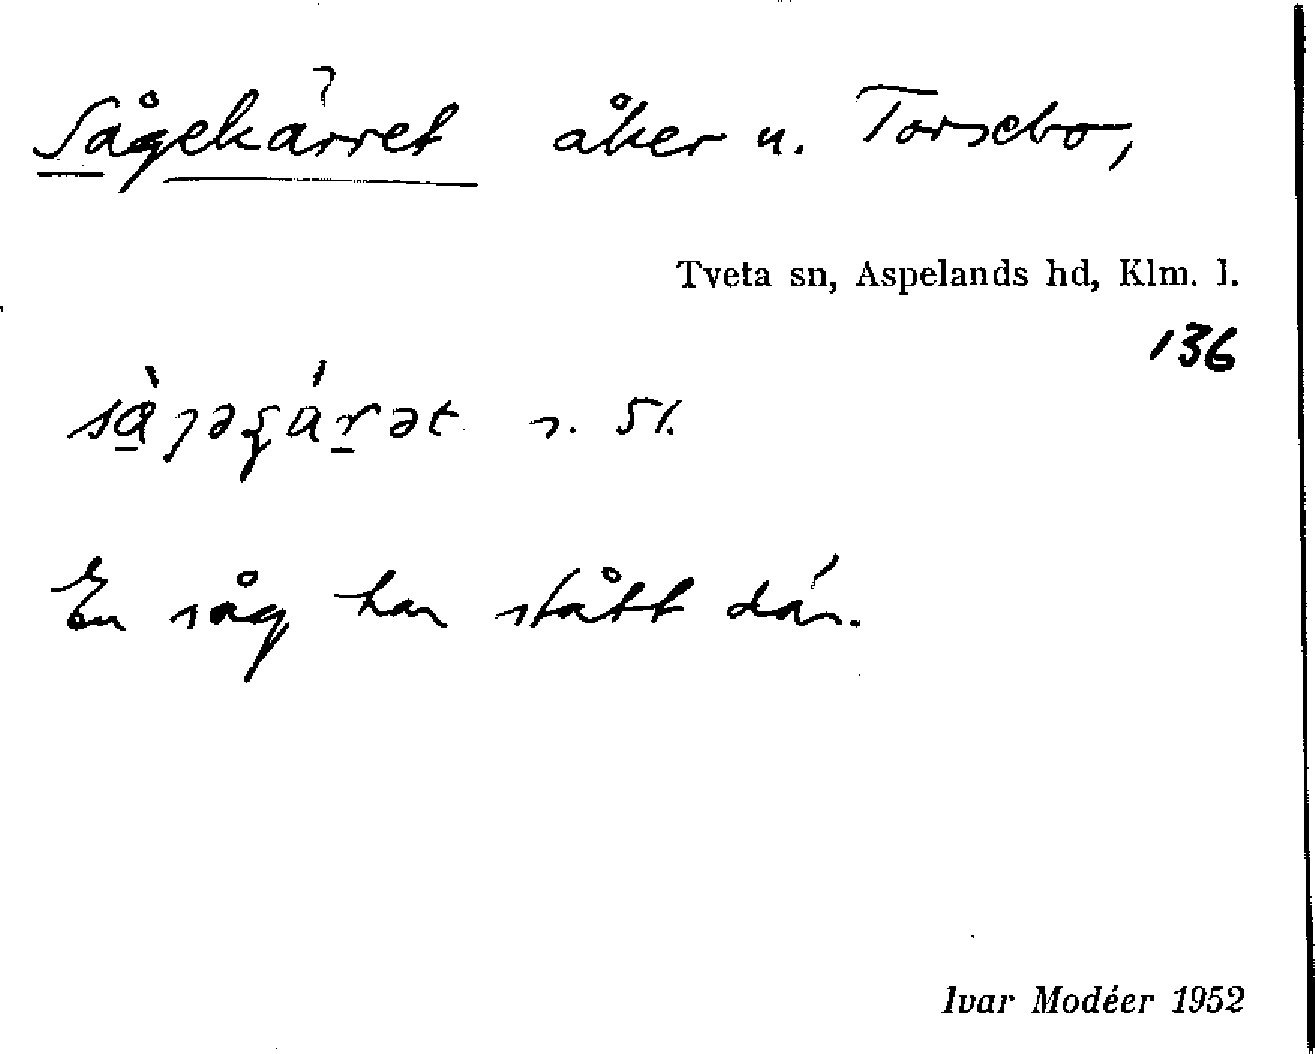 Sågekärret åker u. Torsebo,
Tveta sn, Aspelands hd, Klm. l.
136
En såg har stått där.
Ivar Modéer 1952